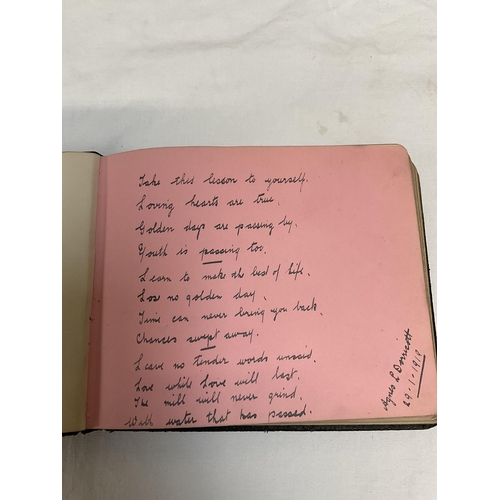 Take this lesson to yourself.
Loving hearts are true.
Golden days are passing by.
Youth is passing too.
Learn to make the best of life.
Lose no golden day.
Time can never bring you back.
Chances swept away.
Leave no tender words unsaid.
Love while Love will last.
The mill will never grind.
With water that has passed.
Agnes L Dorricott
29-1-1918